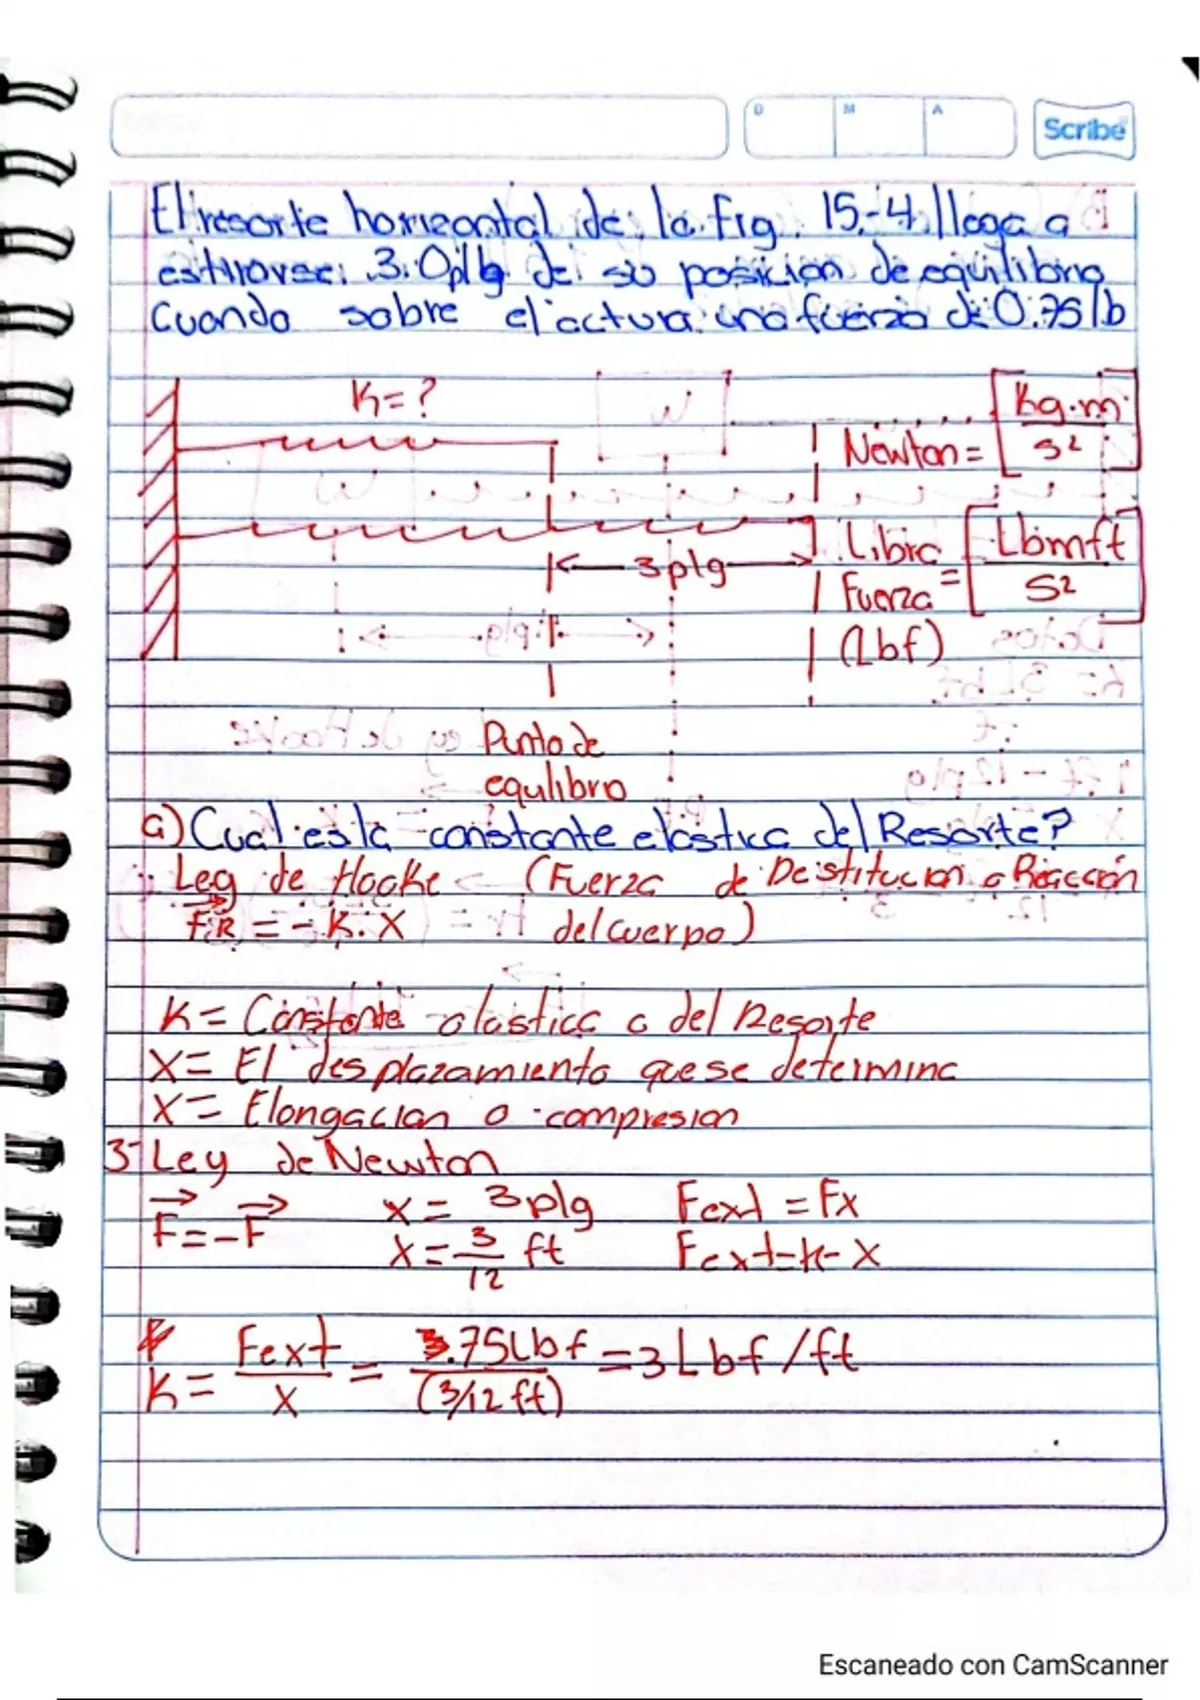 D M A
Scribe
El resorte horizontal de la Fig. 15-4 llega a
estirarse 3.0plg de su posicion de equilibrio
Cuando sobre el actua una fuerza de 0.75lb
K=?
Newton = [Kg.m / s²]
3plg
Libra Fuerza (Lbf) = [Lbmft / s²]
Punto de
equlibro
a) Cual es la constante elastica del Resorte?
Ley de Hooke ← (Fuerza de Destitucion o Reacción
FR = - K . X del cuerpo)
K = Constante elastica o del Resorte
X = El desplazamiento que se determina
X = Elongacion o compresion
3- Ley de Newton
F = -F x = 3plg Fext = Fx
X = 3/12 ft Fext = K - X
K = Fext / X = .75Lbf / (3/12 ft) = 3Lbf/ft
Escaneado con CamScanner